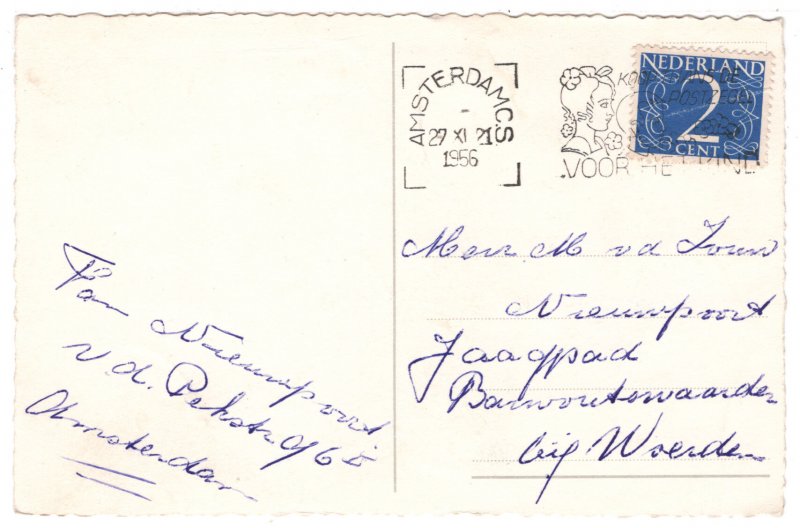 AMSTERDAM C.S
29 XI 21
1956
KOOP DE
POSTZEGE
VOOR HET KIND
NEDERLAND
2
CENT
Fam Nieuwpoort
v d. Pekstr 96 
Amsterdam
Mevr. M v d
Nieuwpoort
Jaagpad
Barwoutswaarder
bij Woerden